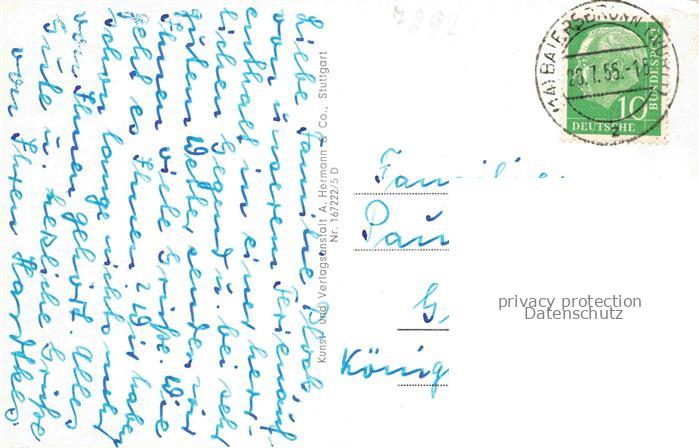 Liebe Familie
von unserem Ferienauf-
enthalt in einer herr-
lichen Gegend u. bei sehr
gutem Wetter senden wir
Ihnen viele Grüße. Wie
geht es Ihnen? Wir haben
schon lange nichts mehr
von Ihnen gehört. Alles
Gute u. herzliche Grüße
von Ihren
Kunst- und Verlagsanstalt A. Hermann & Co., Stuttgart
Nr. 167222/5 D
7292
BAIERSBRONN
10
DEUTSCHE
BUNDESPOST
Familie
Pau
G
König
privacy protection
Datenschutz